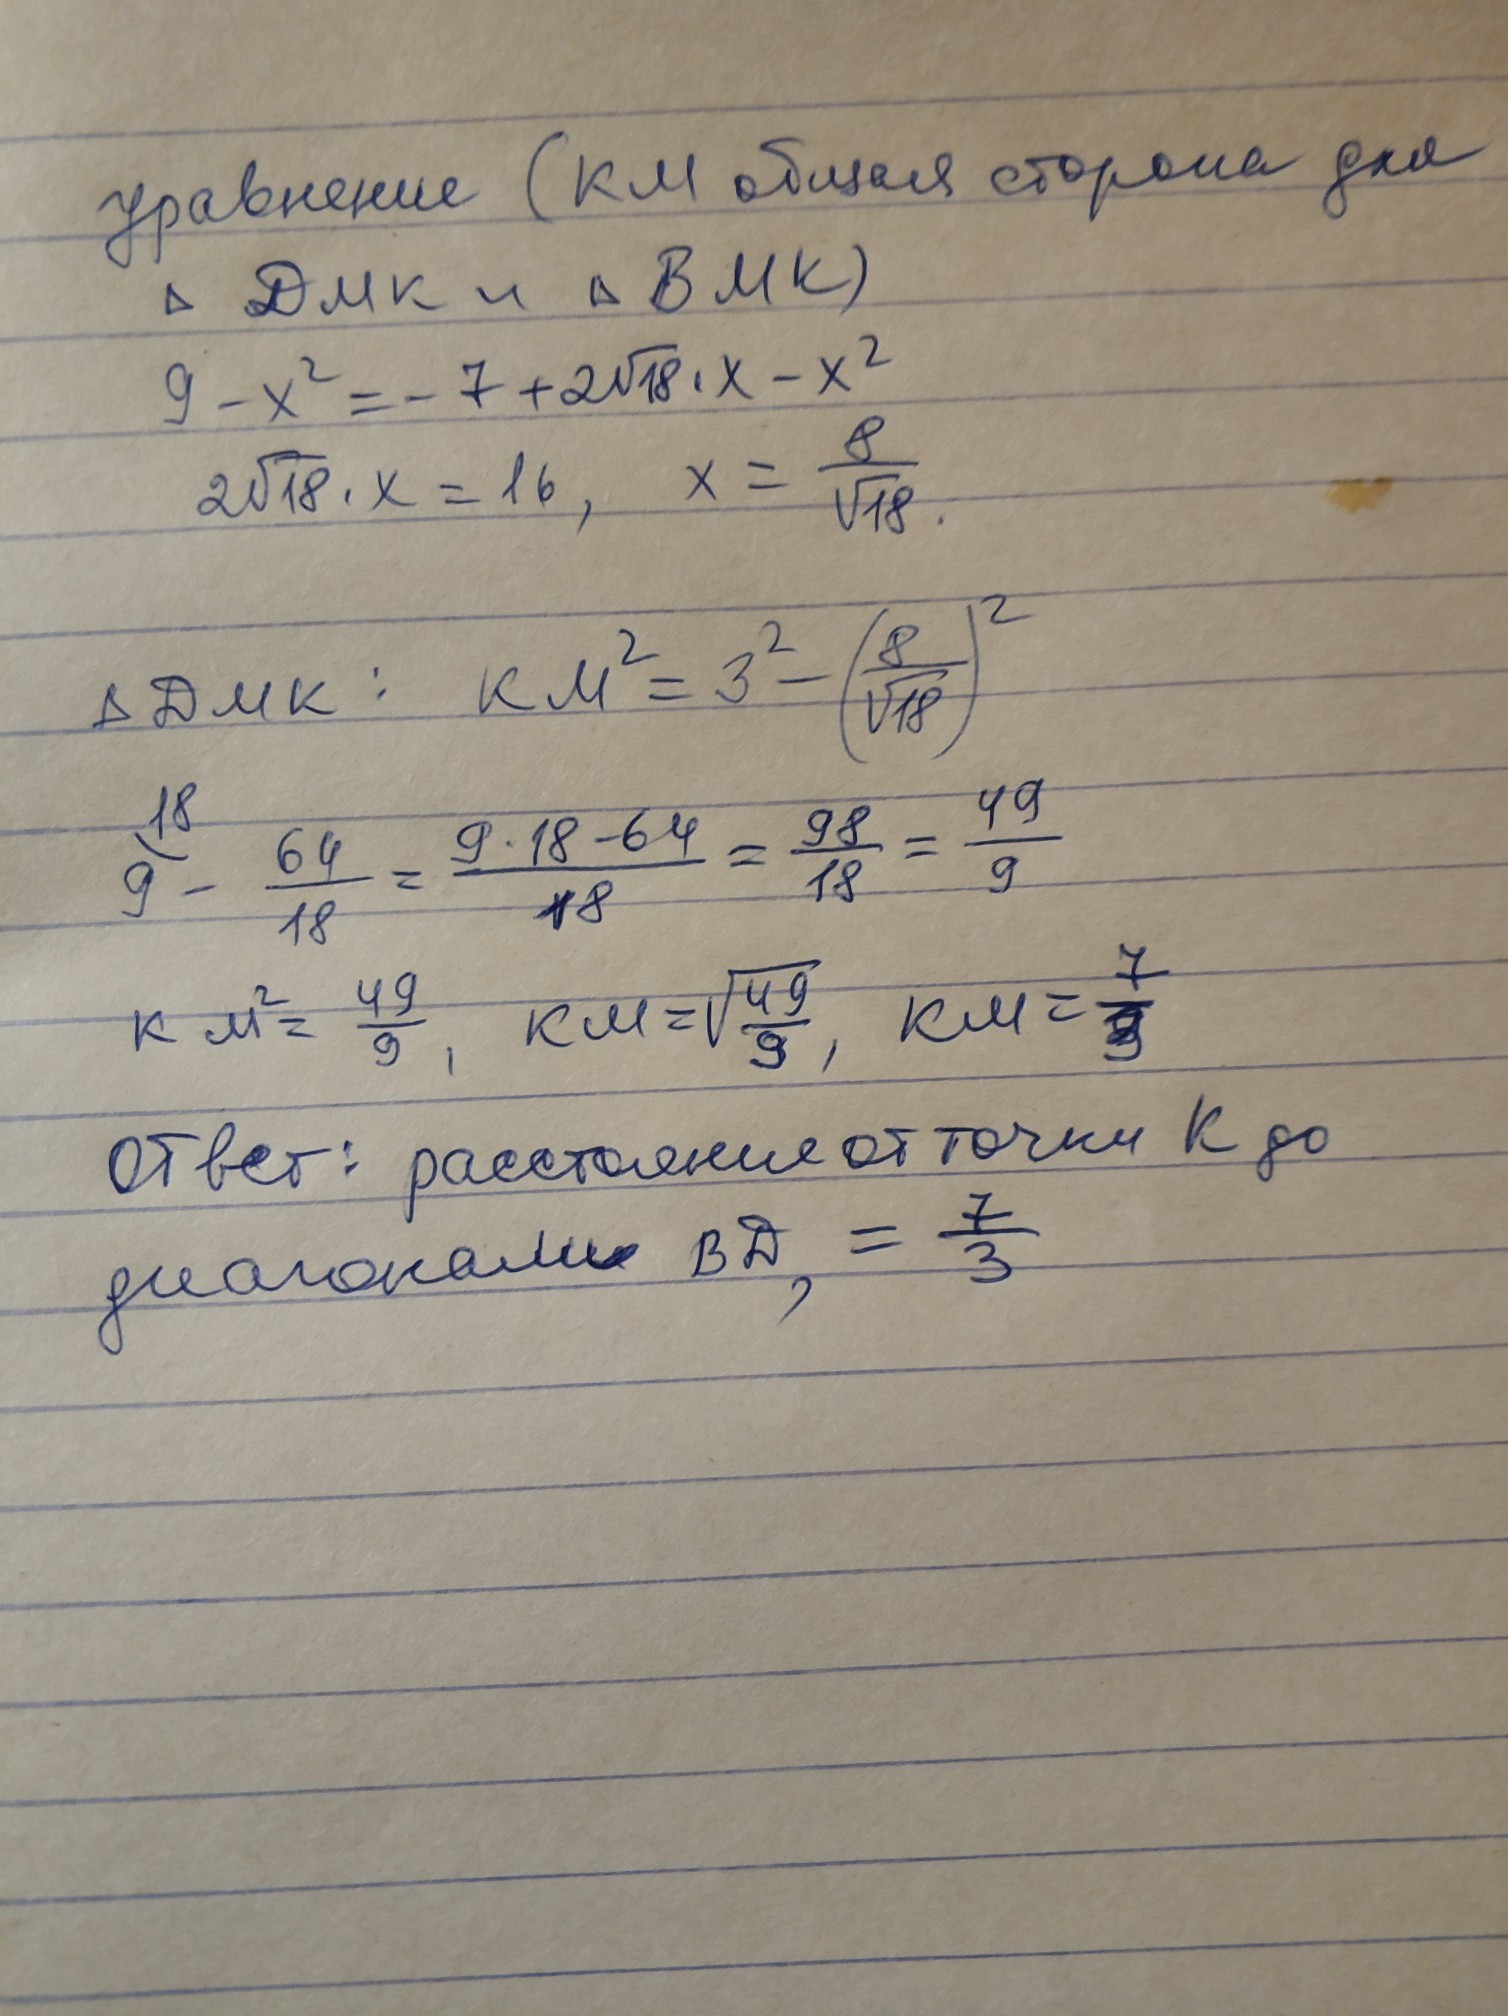 уравнение (КМ общая сторона для
△ ДМК и △ ВМК)
9 - x² = - 7 + 2√18 · x - x²
2√18 · x = 16, x = 8/√18.
△ ДМК: КМ² = 3² - (8/√18)²
18
9 - 64/18 = (9 · 18 - 64)/18 = 98/18 = 49/9
КМ² = 49/9, КМ = √(49/9), КМ = 7/3
Ответ: расстояние от точки К до
диагонали ВД, = 7/3